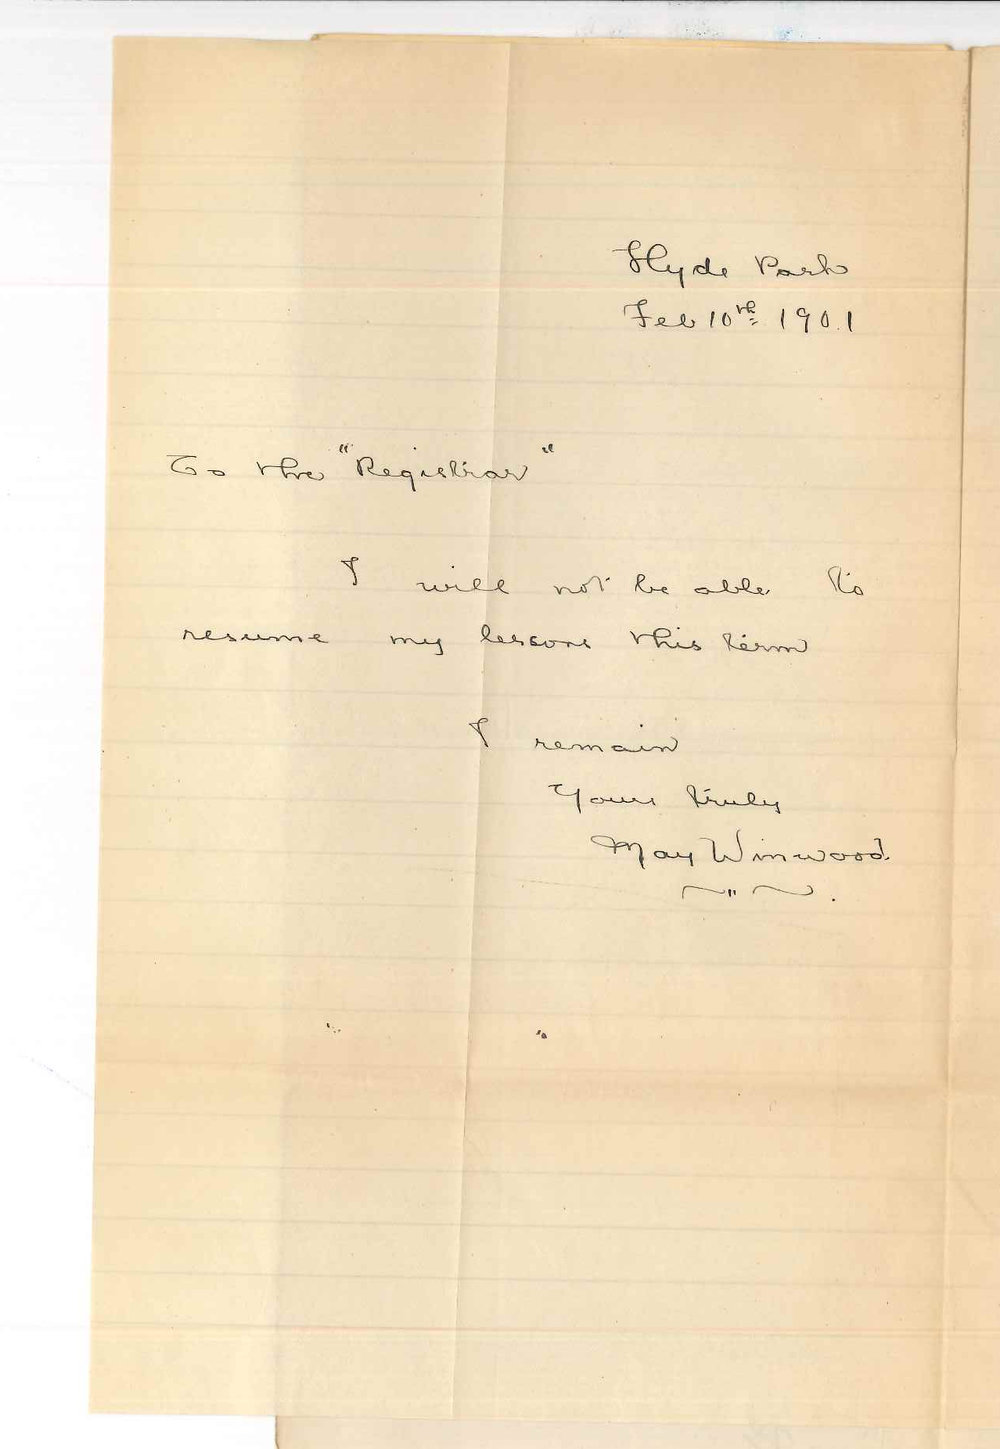 Hyde Park
Feb 10th 1901
To the "Registrar"
I will not be able to
resume my lessons this term
I remain
Yours truly
May Winwood.